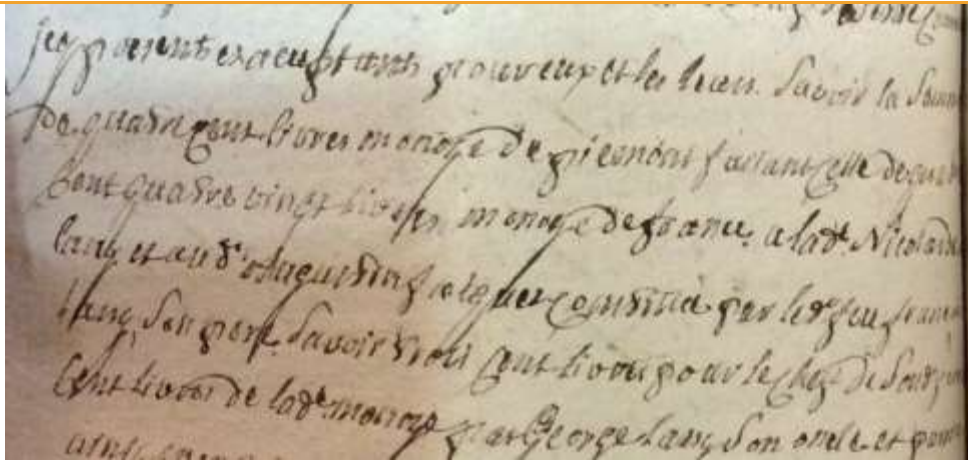 icy present et aceptant pour eux et les leurs. Savoir la somme
de quatre cent livres monoye de piemont faisant celle de quatre
cent quatre vingt livres monoye de france, a lad.e Nicolarde
lang et aud.t Augustin constitué par led.t feu francois
lang son pere, Savoir trois cent livres pour le chef de
Cent livres de lad.e monoye par George lang son oncle et pour